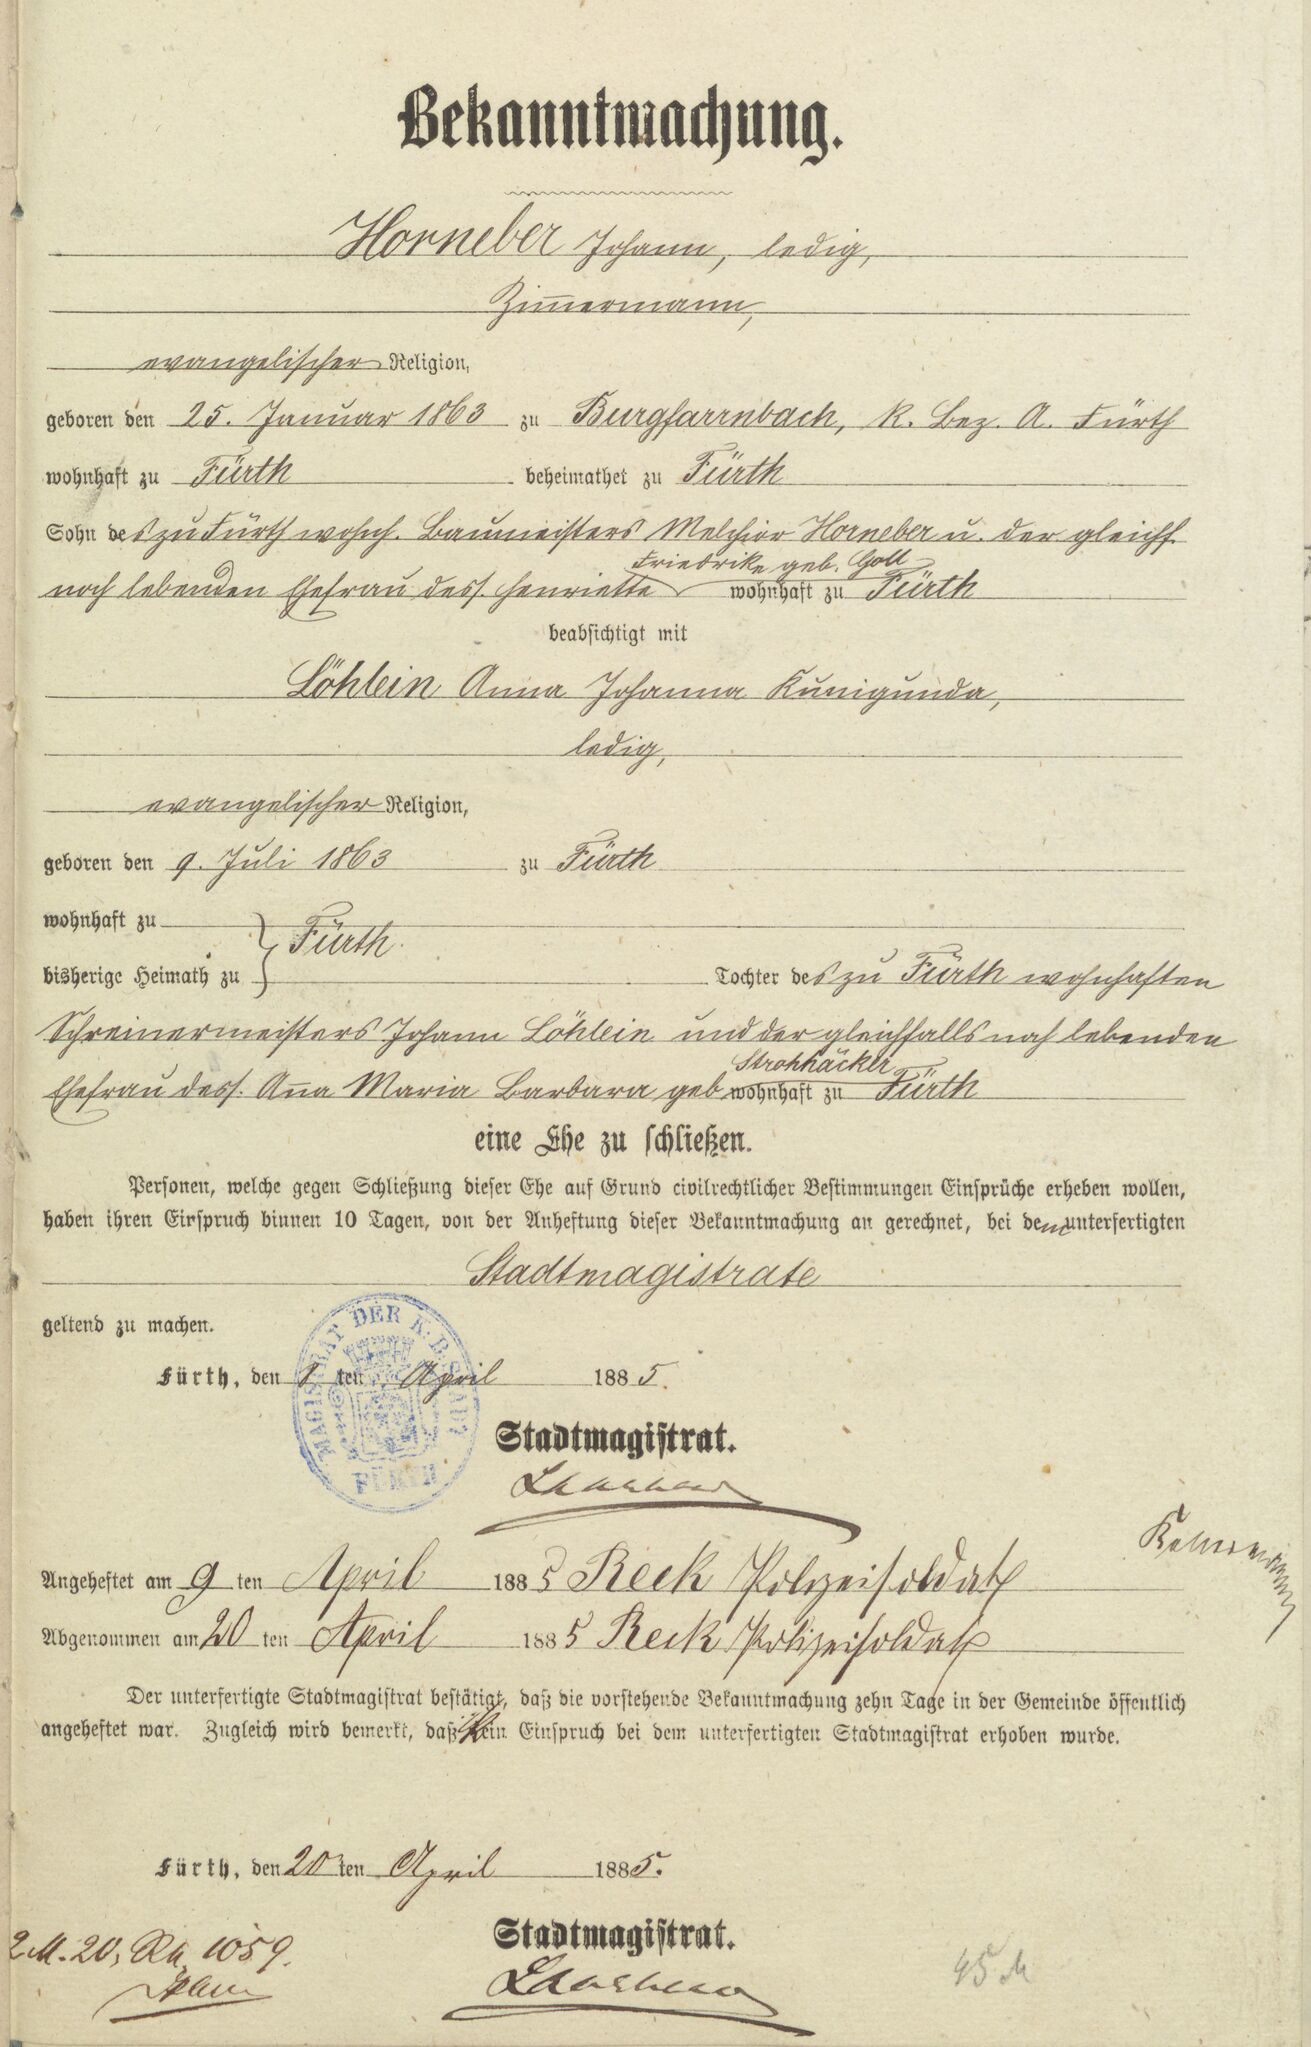 Bekanntmachung.
Horneber Johann, ledig,
Zimmermann,
evangelischer Religion,
geboren den 25. Januar 1863 zu Burgfarrnbach, k. Bez. A. Fürth
wohnhaft zu Fürth beheimathet zu Fürth
Sohn des zu Fürth wohnh. Baumeisters Melchior Horneber u. der gleichf.
Friedrike geb. Goll
noch lebenden Ehefrau dess. Henriette wohnhaft zu Fürth
beabsichtigt mit
Löhlein Anna Johanna Kunigunda,
ledig,
evangelischer Religion,
geboren den 9. Juli 1863 zu Fürth
wohnhaft zu
Fürth.
bisherige Heimath zu Tochter des zu Fürth wohnhaften
Schreinermeisters Johann Löhlein und der gleichfalls noch lebenden
Strohhäcker
Ehefrau dess. Anna Maria Barbara geb wohnhaft zu Fürth
eine Ehe zu schließen.
Personen, welche gegen Schließung dieser Ehe auf Grund civilrechtlicher Bestimmungen Einsprüche erheben wollen,
haben ihren Einspruch binnen 10 Tagen, von der Anheftung dieser Bekanntmachung an gerechnet, bei dem unterfertigten
Stadtmagistrate
geltend zu machen.
MAGISTRAT DER K. B. STADT FÜRTH
Fürth, den ten April 1885.
Stadtmagistrat.
Angeheftet am 9 ten April 1885 Reck Polizeisoldat
Abgenommen am 20 ten April 1885 Reck Polizeisoldat
Der unterfertigte Stadtmagistrat bestätigt, daß die vorstehende Bekanntmachung zehn Tage in der Gemeinde öffentlich
angeheftet war. Zugleich wird bemerkt, daß kein Einspruch bei dem unterfertigten Stadtmagistrat erhoben wurde.
Fürth, den 20 ten April 1885.
Stadtmagistrat.
2 M. 20, 1059.